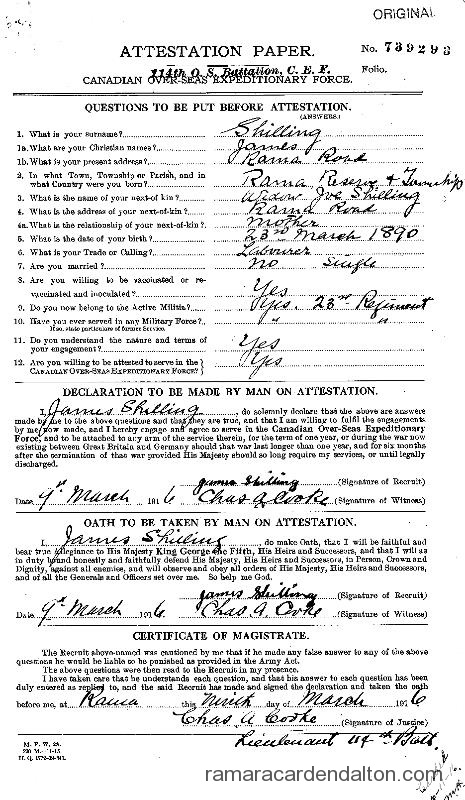 ORIGINAL
ATTESTATION PAPER.
No. 739293
114th O. S. Battalion, C. E. F.
Folio.
CANADIAN OVER-SEAS EXPEDITIONARY FORCE.
QUESTIONS TO BE PUT BEFORE ATTESTATION.
(ANSWERS.)
1. What is your surname? Shilling
1a. What are your Christian names? James
1b. What is your present address? Rama Road
2. In what Town, Township or Parish, and in
what Country were you born? Rama Reserve & Township
3. What is the name of your next-of-kin? Widow Joe Shilling
4. What is the address of your next-of-kin? Rama Road
4a. What is the relationship of your next-of-kin? Mother
5. What is the date of your birth? 23rd March 1890
6. What is your Trade or Calling? Labourer
7. Are you married? No Single
8. Are you willing to be vaccinated or re-
vaccinated and inoculated? Yes
9. Do you now belong to the Active Militia? Yes. 23rd Regiment
10. Have you ever served in any Military Force? " "
If so, state particulars of former Service.
11. Do you understand the nature and terms of
your engagement? Yes
12. Are you willing to be attested to serve in the
CANADIAN OVER-SEAS EXPEDITIONARY FORCE? Yes
DECLARATION TO BE MADE BY MAN ON ATTESTATION.
I, James Shilling, do solemnly declare that the above are answers
made by me to the above questions and that they are true, and that I am willing to fulfil the engagements
by me now made, and I hereby engage and agree to serve in the Canadian Over-Seas Expeditionary
Force, and to be attached to any arm of the service therein, for the term of one year, or during the war now
existing between Great Britain and Germany should that war last longer than one year, and for six months
after the termination of that war provided His Majesty should so long require my services, or until legally
discharged.
James Shilling (Signature of Recruit)
Date 9th March 1916 Chas A Cooke (Signature of Witness)
OATH TO BE TAKEN BY MAN ON ATTESTATION.
I, James Shilling, do make Oath, that I will be faithful and
bear true Allegiance to His Majesty King George the Fifth, His Heirs and Successors, and that I will as
in duty bound honestly and faithfully defend His Majesty, His Heirs and Successors, in Person, Crown and
Dignity, against all enemies, and will observe and obey all orders of His Majesty, His Heirs and Successors,
and of all the Generals and Officers set over me. So help me God.
James Shilling (Signature of Recruit)
Date 9th March 1916. Chas A. Cooke (Signature of Witness)
CERTIFICATE OF MAGISTRATE.
The Recruit above-named was cautioned by me that if he made any false answer to any of the above
questions he would be liable to be punished as provided in the Army Act.
The above questions were then read to the Recruit in my presence.
I have taken care that he understands each question, and that his answer to each question has been
duly entered as replied to, and the said Recruit has made and signed the declaration and taken the oath
before me, at Rama this Ninth day of March 1916
Chas A Cooke (Signature of Justice)
Lieutenant 114th Batt.
M. F. W. 23.
H. Q. 1772-39-841.
ramaracardendalton.com